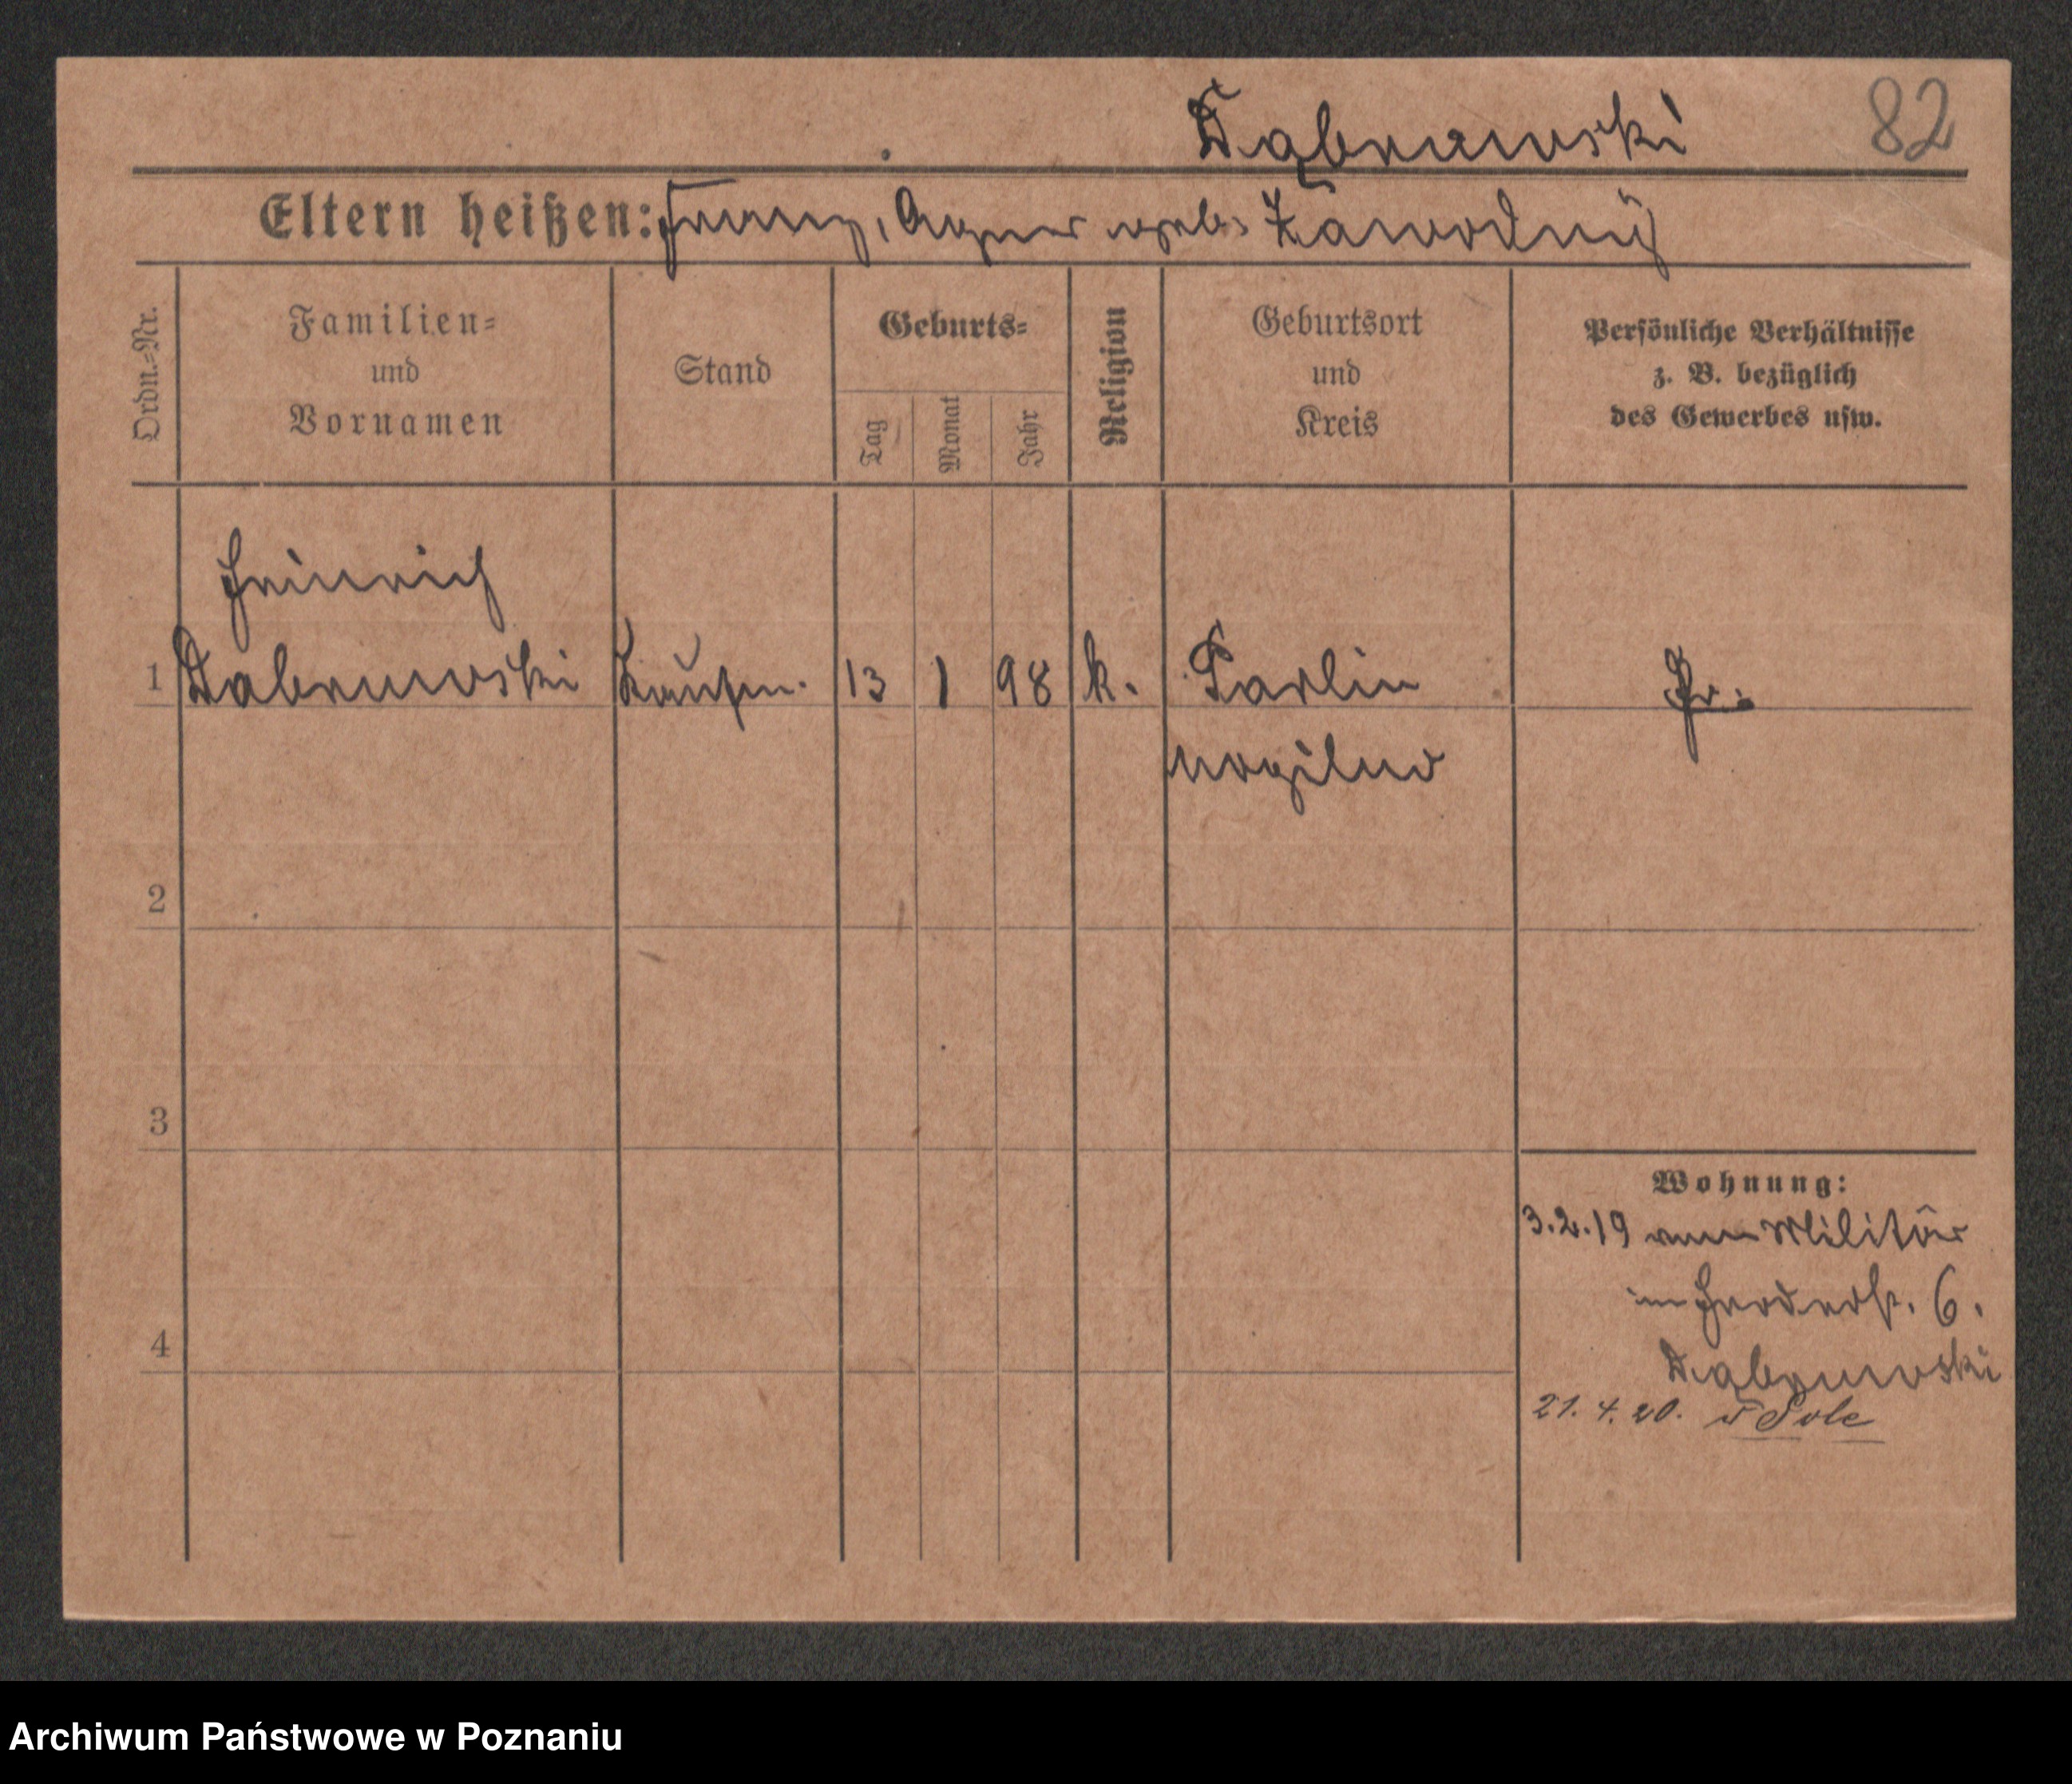 Dąbrowski 82
Eltern heißen: Franz, Agnes geb. Zawodny
Ordn.-Nr.
Familien-
und
Vornamen
Stand
Geburts-
Tag
Monat
Jahr
Religion
Geburtsort
und
Kreis
Persönliche Verhältnisse
z. B. bezüglich
des Gewerbes usw.
Heinrich
1 Dabrowski Kaufm. 13 1 98 k. Parlin Pr.
Mogilno
2
3
4
Wohnung:
3.2.19 vom Militär
in 6.
Dąbrowski
21.4.20.
Archiwum Państwowe w Poznaniu